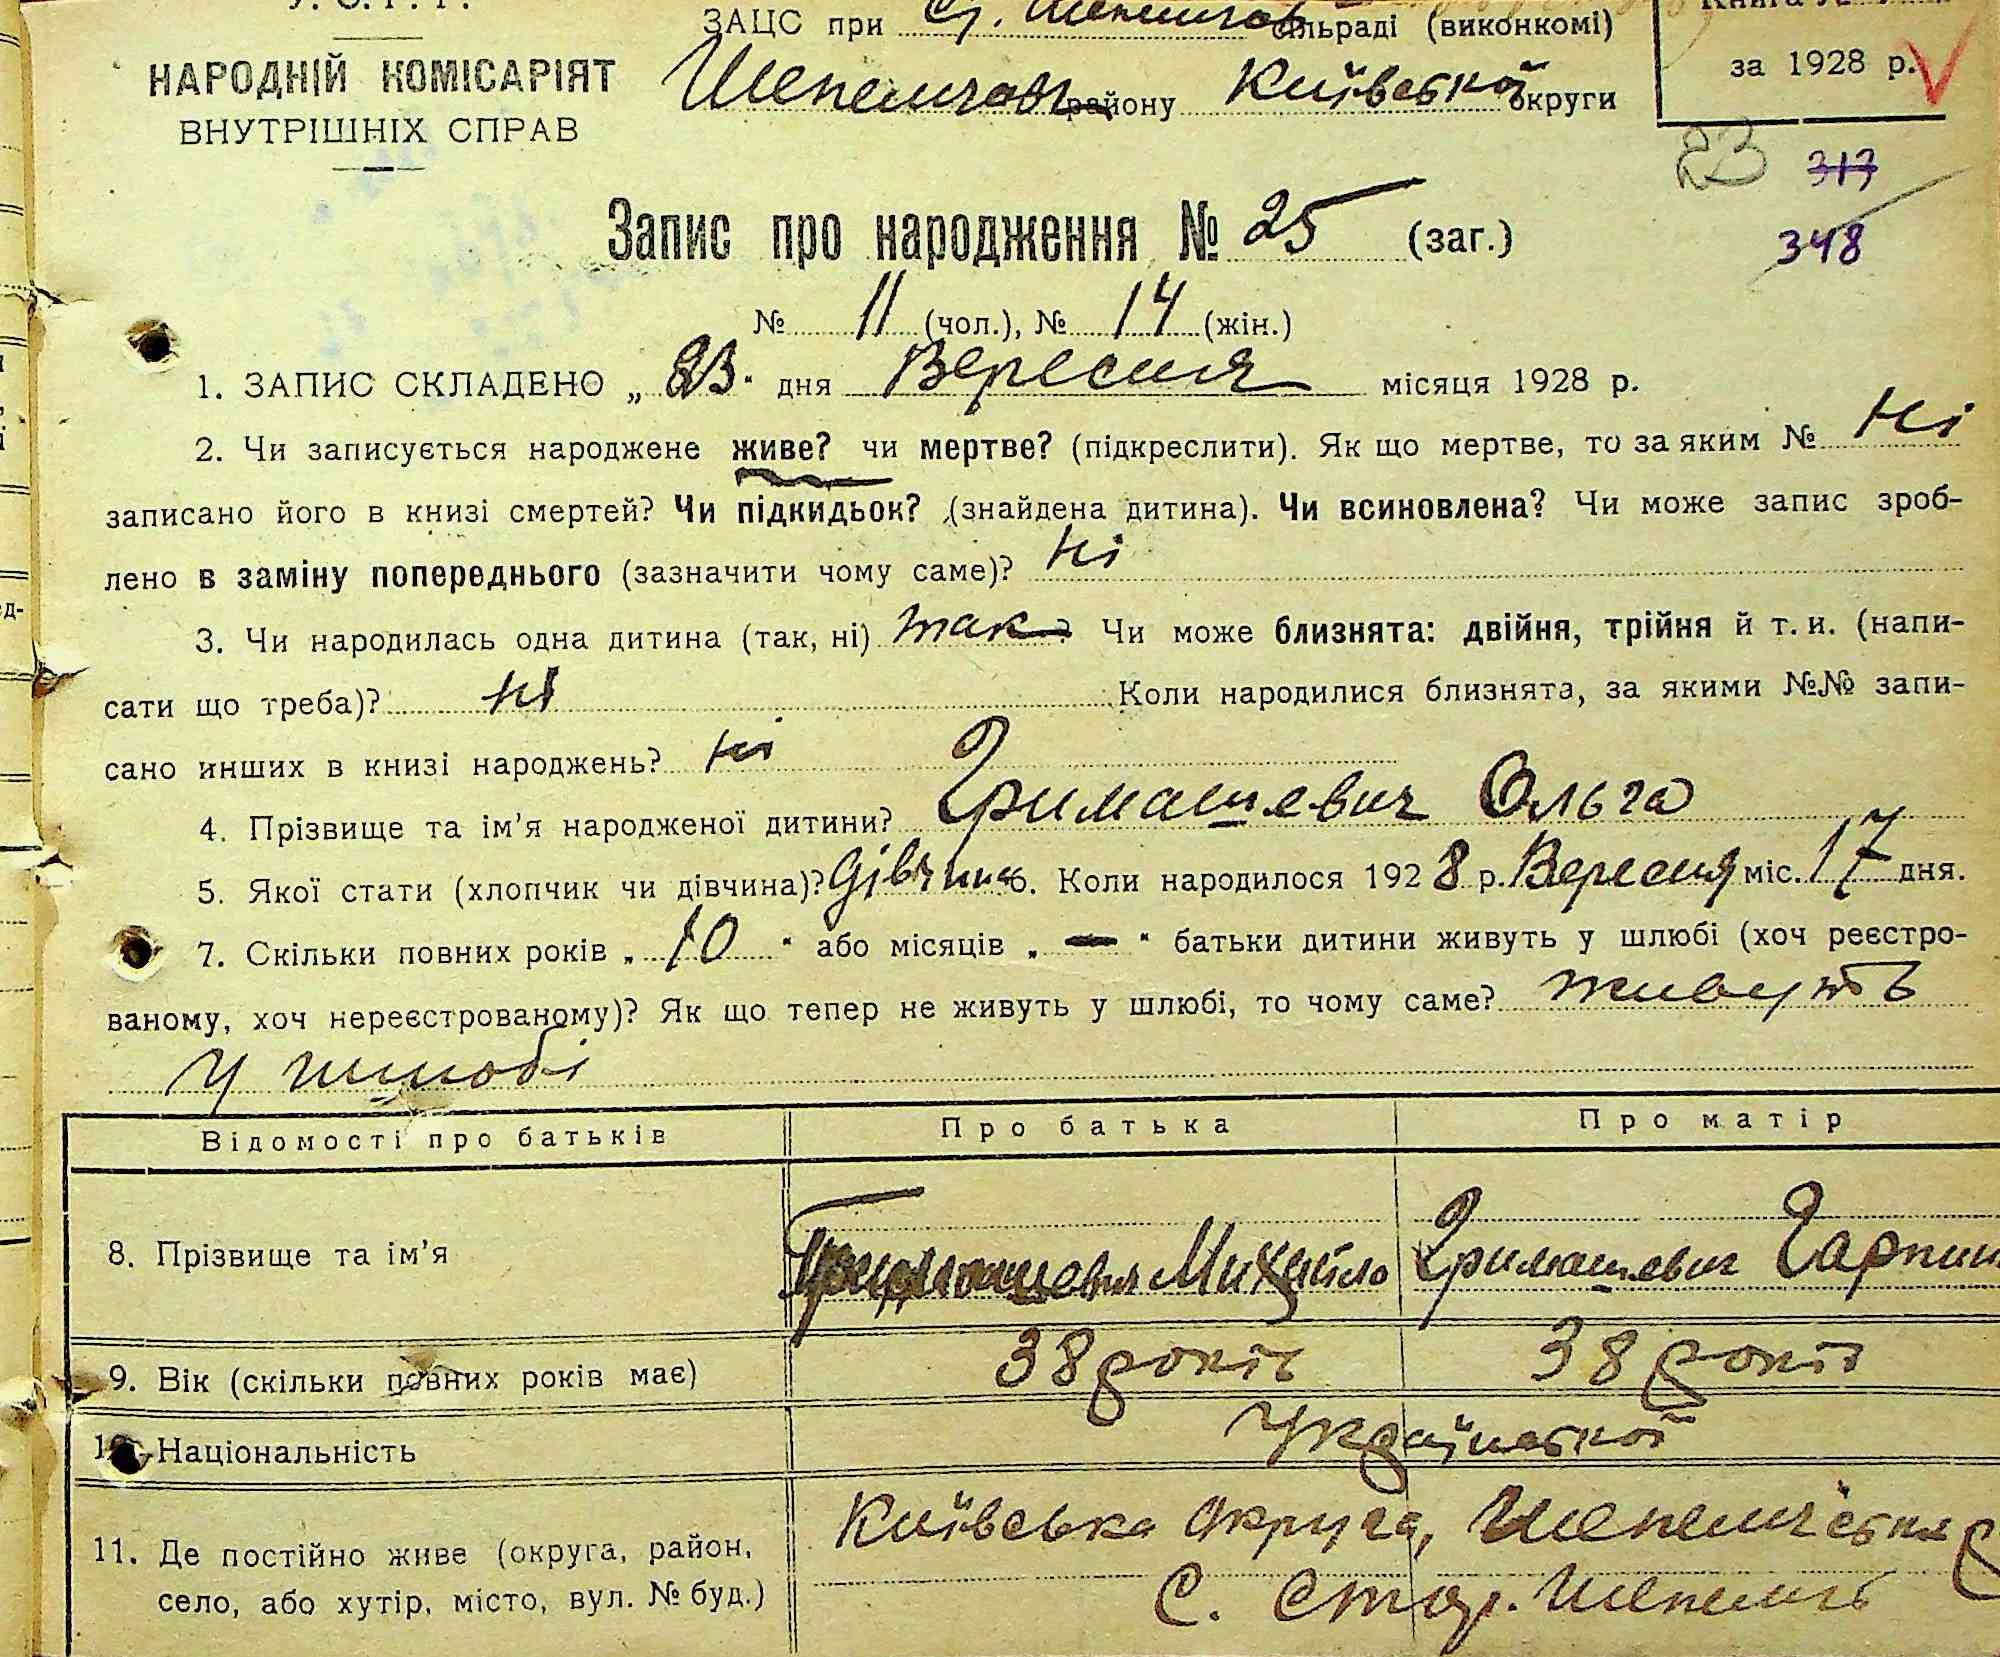 У. С. Р. Р.
НАРОДНІЙ КОМІСАРІЯТ
ВНУТРІШНІХ СПРАВ
ЗАЦС при Ст. Шепелич сільраді (виконкомі)
Шепелич району Київської округи
Книга №
за 1928 р.
23 313
348
Запис про народження № 25 (заг.)
№ 11 (чол.), № 14 (жін.)
1. ЗАПИС СКЛАДЕНО „ 23 “ дня Вересня місяця 1928 р.
2. Чи записується народжене живе? чи мертве? (підкреслити). Як що мертве, то за яким № Ні
записано його в книзі смертей? Чи підкидьок? (знайдена дитина). Чи всиновлена? Чи може запис зроб-
лено в заміну попереднього (зазначити чому саме)? Ні
3. Чи народилась одна дитина (так, ні) так ? Чи може близнята: двійня, трійня й т. и. (напи-
сати що треба)? ні Коли народилися близнята, за якими №№ запи-
сано инших в книзі народжень? Ні
4. Прізвище та ім’я народженої дитини? Гримашевич Ольга
5. Якої стати (хлопчик чи дівчина)? Дівчина 6. Коли народилося 1928 р. Вересня міс. 17 дня.
7. Скільки повних років „ 10 “ або місяців „ — “ батьки дитини живуть у шлюбі (хоч реєстро-
ваному, хоч нереєстрованому)? Як що тепер не живуть у шлюбі, то чому саме? живуть
у шлюбі
Відомості про батьків Про батька Про матір
8. Прізвище та ім’я Гримашевич Михайло Гримашевич Гарпин
9. Вік (скільки повних років має) 38 років 38 років
10. Національність Української
11. Де постійно живе (округа, район, Київська округа,
село, або хутір, місто, вул. № буд.) С. Стар. Шепеличі